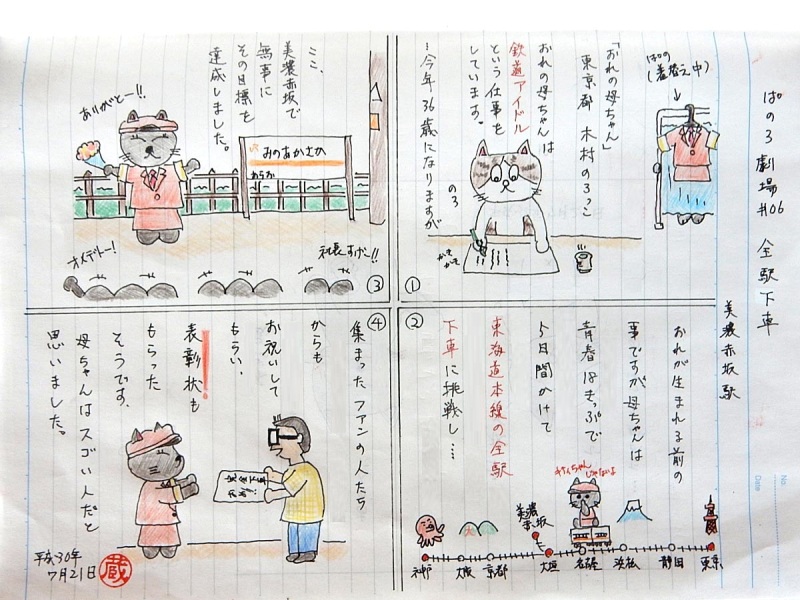 ぱのろ劇場#06 全駅下車
美濃赤坂駅
ぱの
(着替え中)
「おれの母ちゃん」
東京都 木村のろっこ
おれの母ちゃんは
鉄道アイドル
という仕事を
しています。
…今年36歳になりますが
のろ
かきかき
①
②
おれが生まれる前の
事ですが母ちゃんは
青春18きっぷで
5日間かけて
東海道本線の全駅
下車に挑戦し…
美濃赤坂
神戸
大阪
京都
大垣
名古屋
浜松
静岡
東京
③
ここ、
美濃赤坂で
無事に
その目標を
達成しました。
ありがとー!!
みのあかさか
あらお
オメデトー!
社長すげー!!
④
集まったファンの人たち
からも
お祝いして
もらい、
表彰状も
もらった
そうです。
母ちゃんはスゴい人だと
思いました。
平成30年
7月21日
蔵